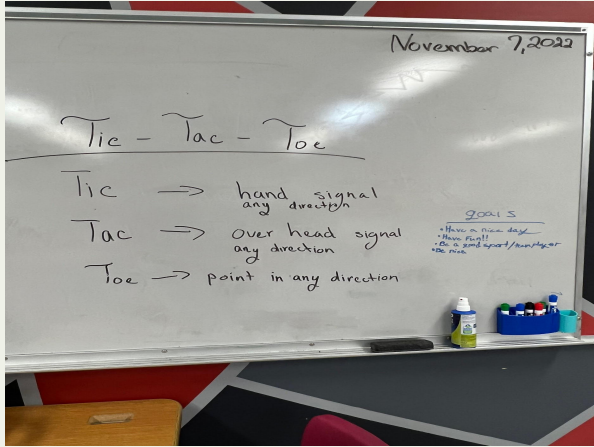 November 7, 2022
Tic - Tac - Toe
Tic → hand signal
any direction
Tac → over head signal
any direction
Toe → point in any direction
goals
• Have a nice day
• Have Fun!!
• Be a good sport/
• Be nice